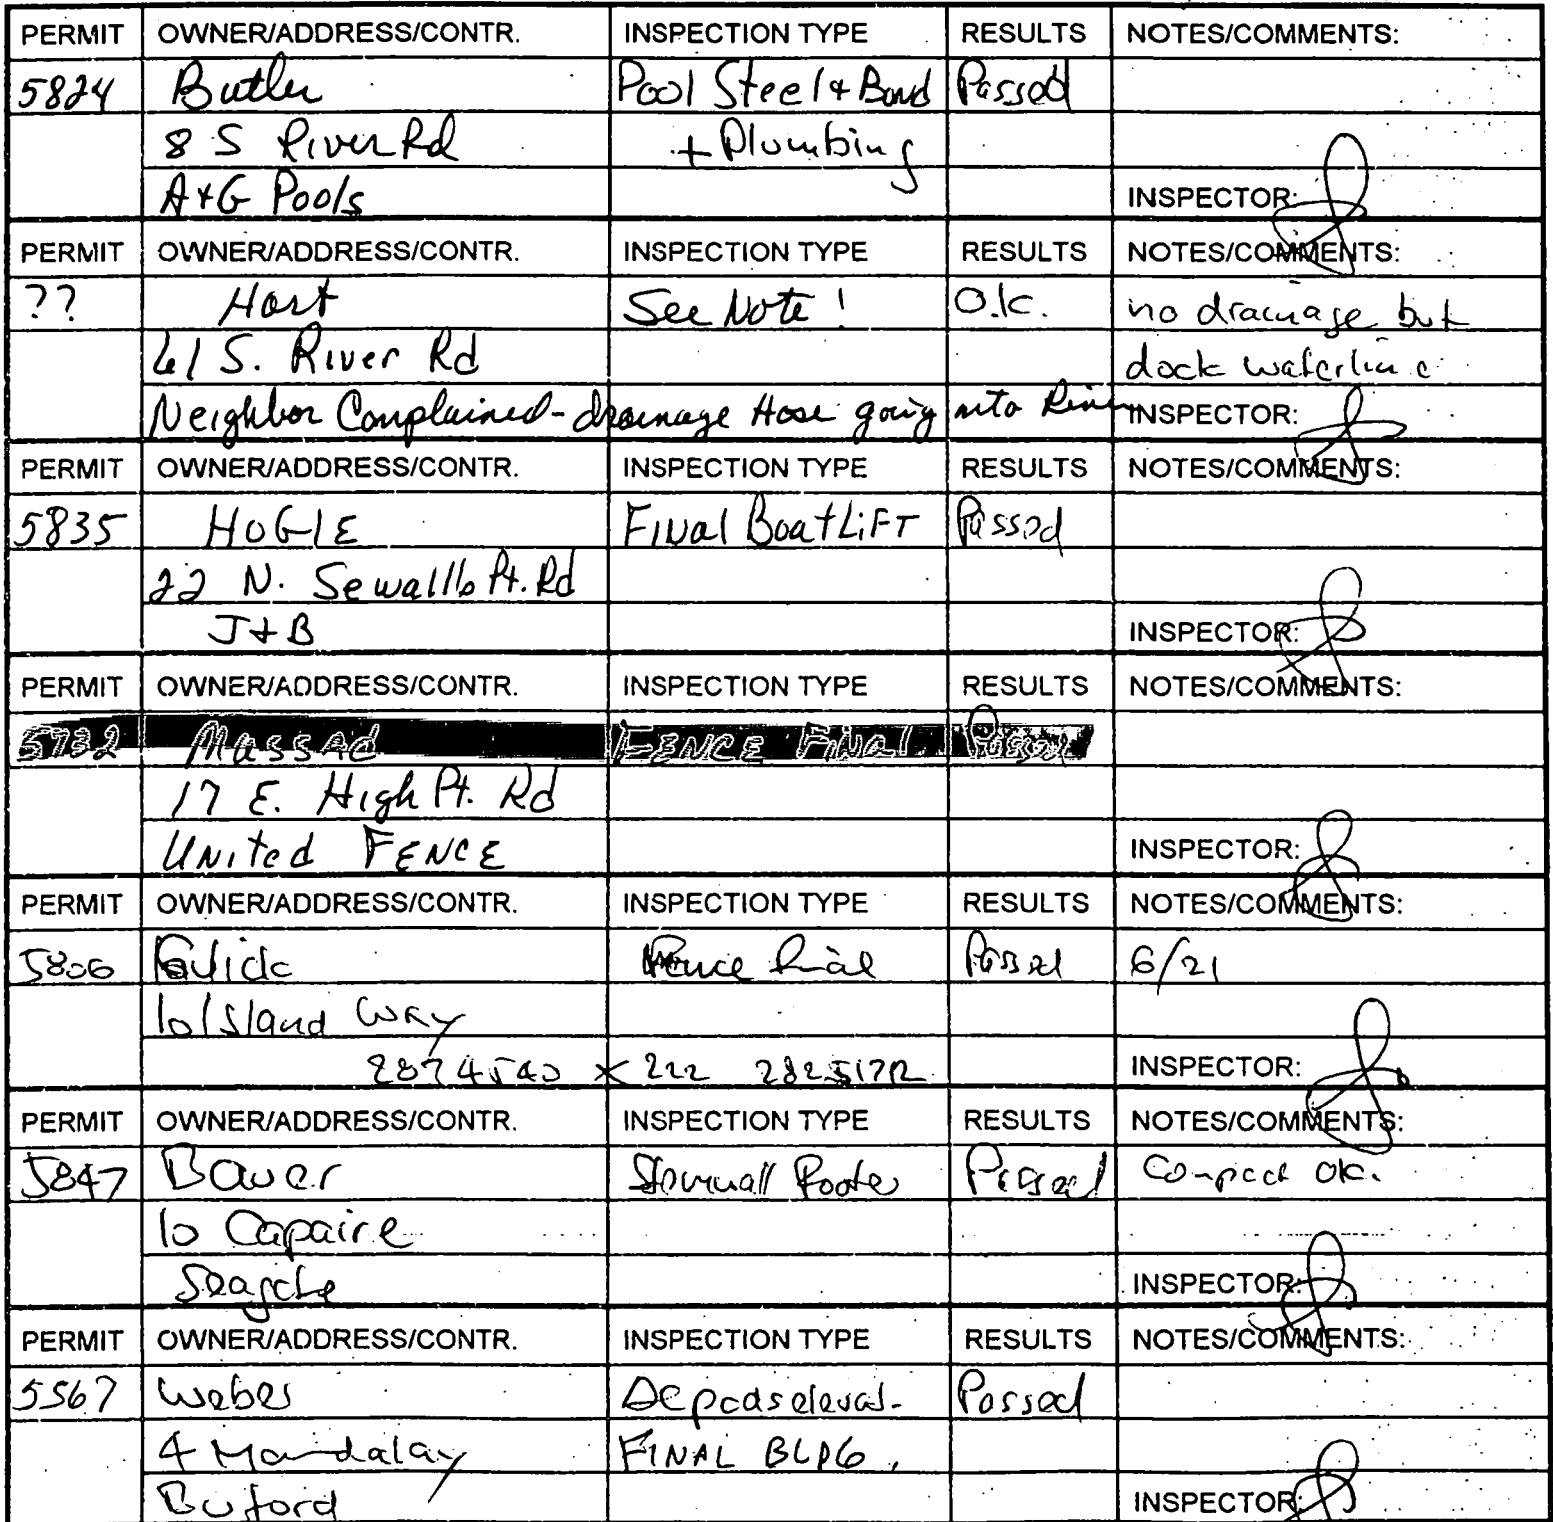 PERMIT OWNER/ADDRESS/CONTR. INSPECTION TYPE RESULTS NOTES/COMMENTS:
5824 Butler Pool Steel & Bond Passed
8 S River Rd + Plumbing
A+G Pools INSPECTOR:
PERMIT OWNER/ADDRESS/CONTR. INSPECTION TYPE RESULTS NOTES/COMMENTS:
?? Hart See Note! O.K. no drainage but
61 S. River Rd dock waterline
Neighbor Complained - drainage Hose going into River INSPECTOR:
PERMIT OWNER/ADDRESS/CONTR. INSPECTION TYPE RESULTS NOTES/COMMENTS:
5835 HOGLE FINAL Boat LIFT Passed
22 N. Sewall's Pt. Rd
J+B INSPECTOR:
PERMIT OWNER/ADDRESS/CONTR. INSPECTION TYPE RESULTS NOTES/COMMENTS:
5732 MASSAD FENCE FINAL Passed
17 E. High Pt. Rd
UNITED FENCE INSPECTOR:
PERMIT OWNER/ADDRESS/CONTR. INSPECTION TYPE RESULTS NOTES/COMMENTS:
5806 Fence final Passed 6/21
10 Island Way
2874540 x 222 INSPECTOR:
PERMIT OWNER/ADDRESS/CONTR. INSPECTION TYPE RESULTS NOTES/COMMENTS:
5847 Bauer Stemwall Footer Passed Compact OK.
10 Capaire
INSPECTOR:
PERMIT OWNER/ADDRESS/CONTR. INSPECTION TYPE RESULTS NOTES/COMMENTS:
5567 Weber Passed
4 Mandalay FINAL BLDG.
Buford INSPECTOR: